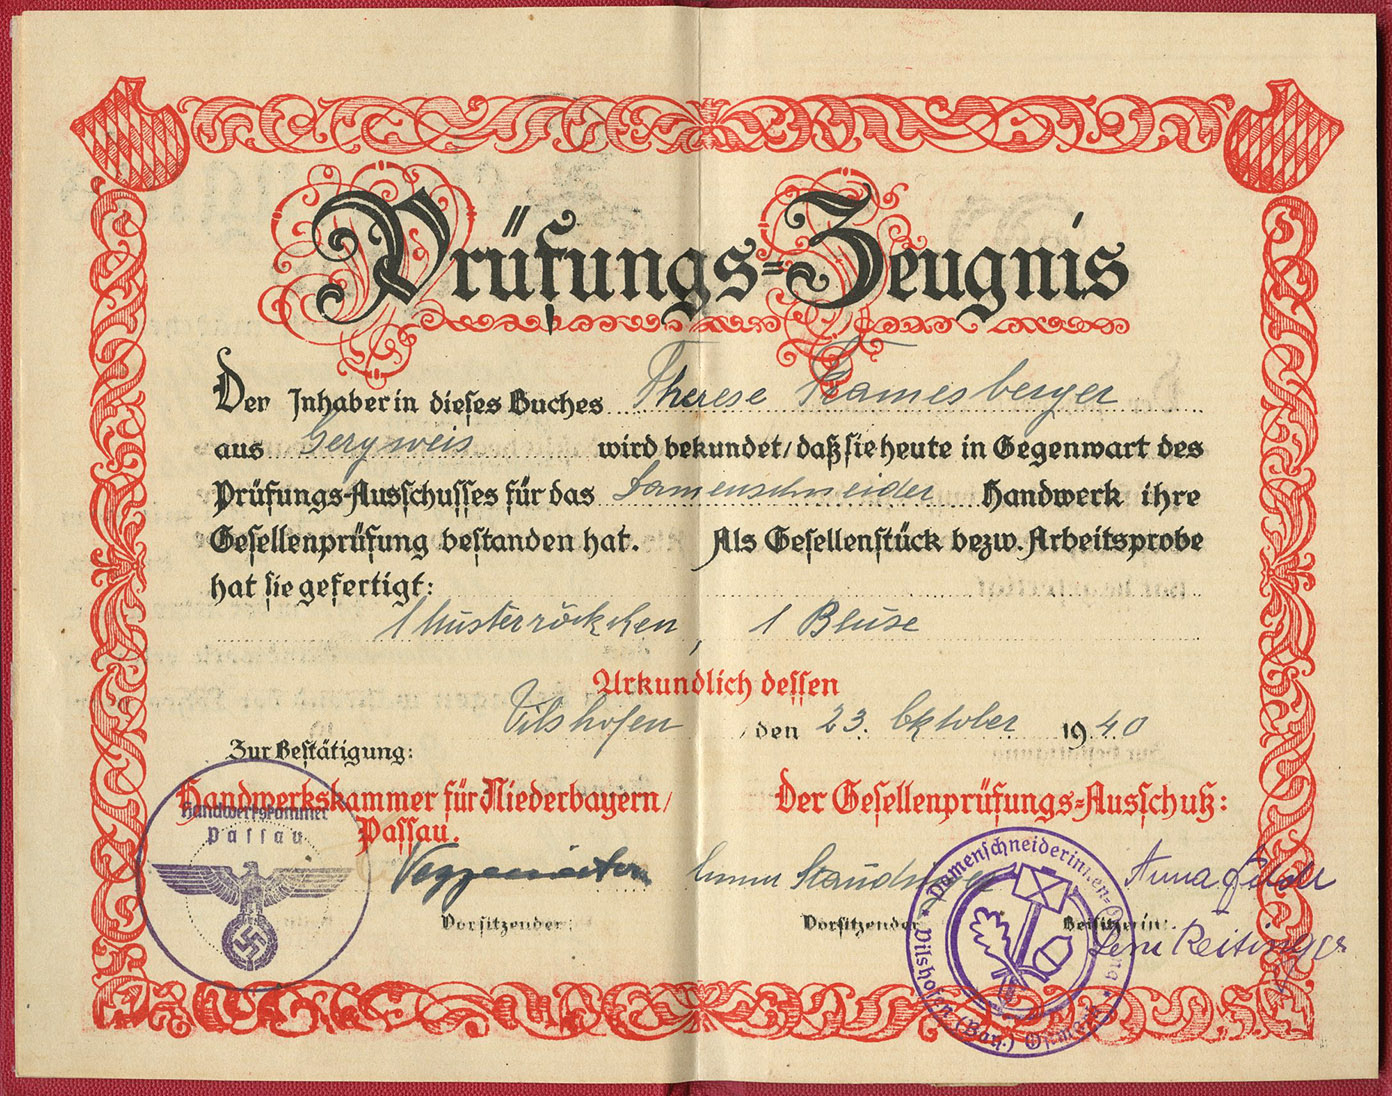 Prüfungs=Zeugnis
Der Inhaberin dieses Buches Therese
aus Gergweis wird bekundet, daß sie heute in Gegenwart des
Prüfungs-Ausschusses für das Damenschneider Handwerk ihre
Gesellenprüfung bestanden hat. Als Gesellenstück bezw. Arbeitsprobe
hat sie gefertigt:
1 Musterröckchen, 1 Bluse
Urkundlich dessen
Vilshofen, den 23. Oktober 1940
Zur Bestätigung:
Handwerkskammer für Niederbayern,
Passau.
Der Gesellenprüfungs=Ausschuß:
Handwerkskammer
Passau
Anna
Vorsitzender:
Vorsitzender
Beisitzerin:
Leni Reitinger
Damenschneiderinnen-
Vilshofen (Bay.)